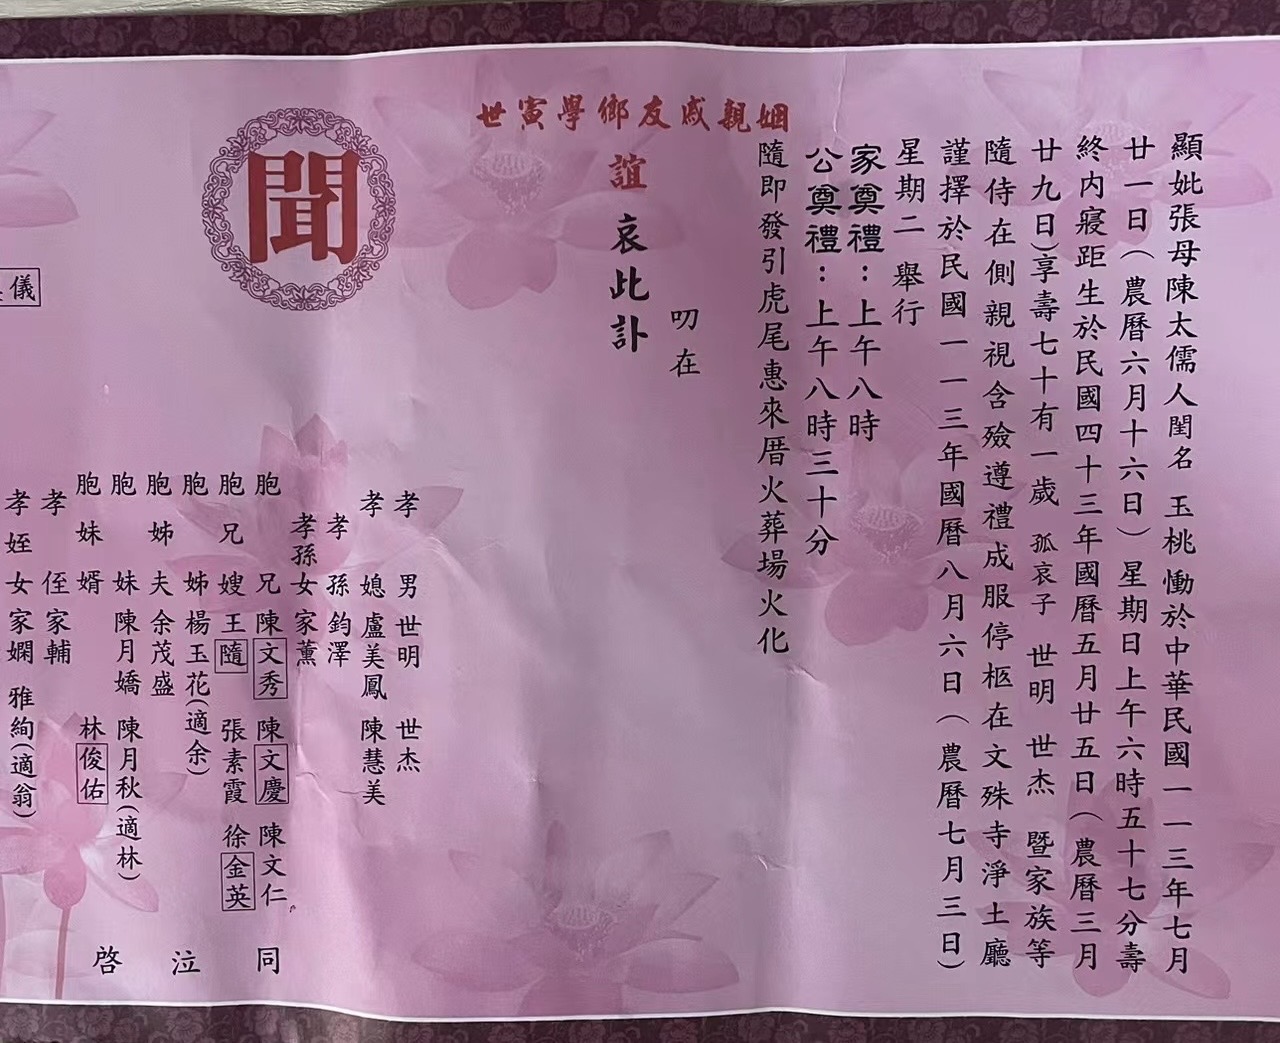 顯妣張母陳太儒人閨名 玉桃 慟於中華民國一一三年七月
廿一日(農曆六月十六日)星期日上午六時五十七分壽
終內寢距生於民國四十三年國曆五月廿五日(農曆三月
廿九日)享壽七十有一歲 孤哀子 世明 世杰 暨家族等
隨侍在側親視含殮遵禮成服停柩在文殊寺淨土廳
謹擇於民國一一三年國曆八月六日(農曆七月三日)
星期二 舉行
家奠禮:上午八時
公奠禮:上午八時三十分
隨即發引虎尾惠來厝火葬場火化
姻親戚友鄉學寅世
叨在
誼 哀此訃
聞
孝男 世明 世杰
孝媳 盧美鳳 陳慧美
孝孫 鈞澤
孝孫女 家薰
胞兄 陳文秀 陳文慶 陳文仁
胞兄嫂 王隨 張素霞 徐金英
胞姊 楊玉花(適余)
胞姊夫 余茂盛
胞妹 陳月嬌 陳月秋(適林)
胞妹婿 林俊佑
孝侄 家輔
孝姪女 家嫻 雅絢(適翁)
儀
同泣啓